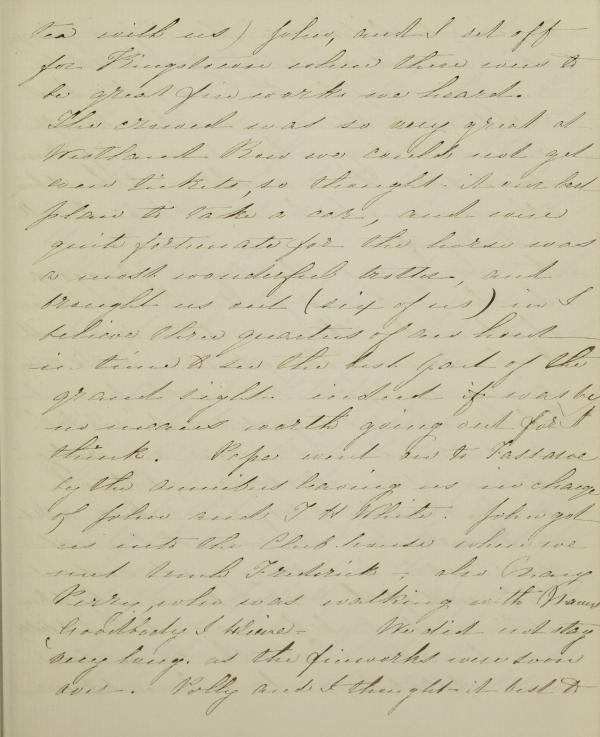 tea with us) John, and I set off
for Kingstown where there were to
be great fireworks we heard.
The crowd was so very great at
Westland Row we could not get
even tickets, so thought it our best
plan to take a car, and were
quite fortunate for the horse was
a most wonderful trotter, and
brought us out (six of us) in I
believe three quarters of an hour
in time to see the best part of the
grand sight. indeed it was by
no means worth going out for I
think. Papa went on to
by the omnibus leaving us in charge
of John and T H White. John got
us into the Club house where we
met Uncle Frederick, also
Perry, who was walking with
Goodbody I believe - We did not stay
very long. as the fireworks were soon
over. Polly and I thought it best to